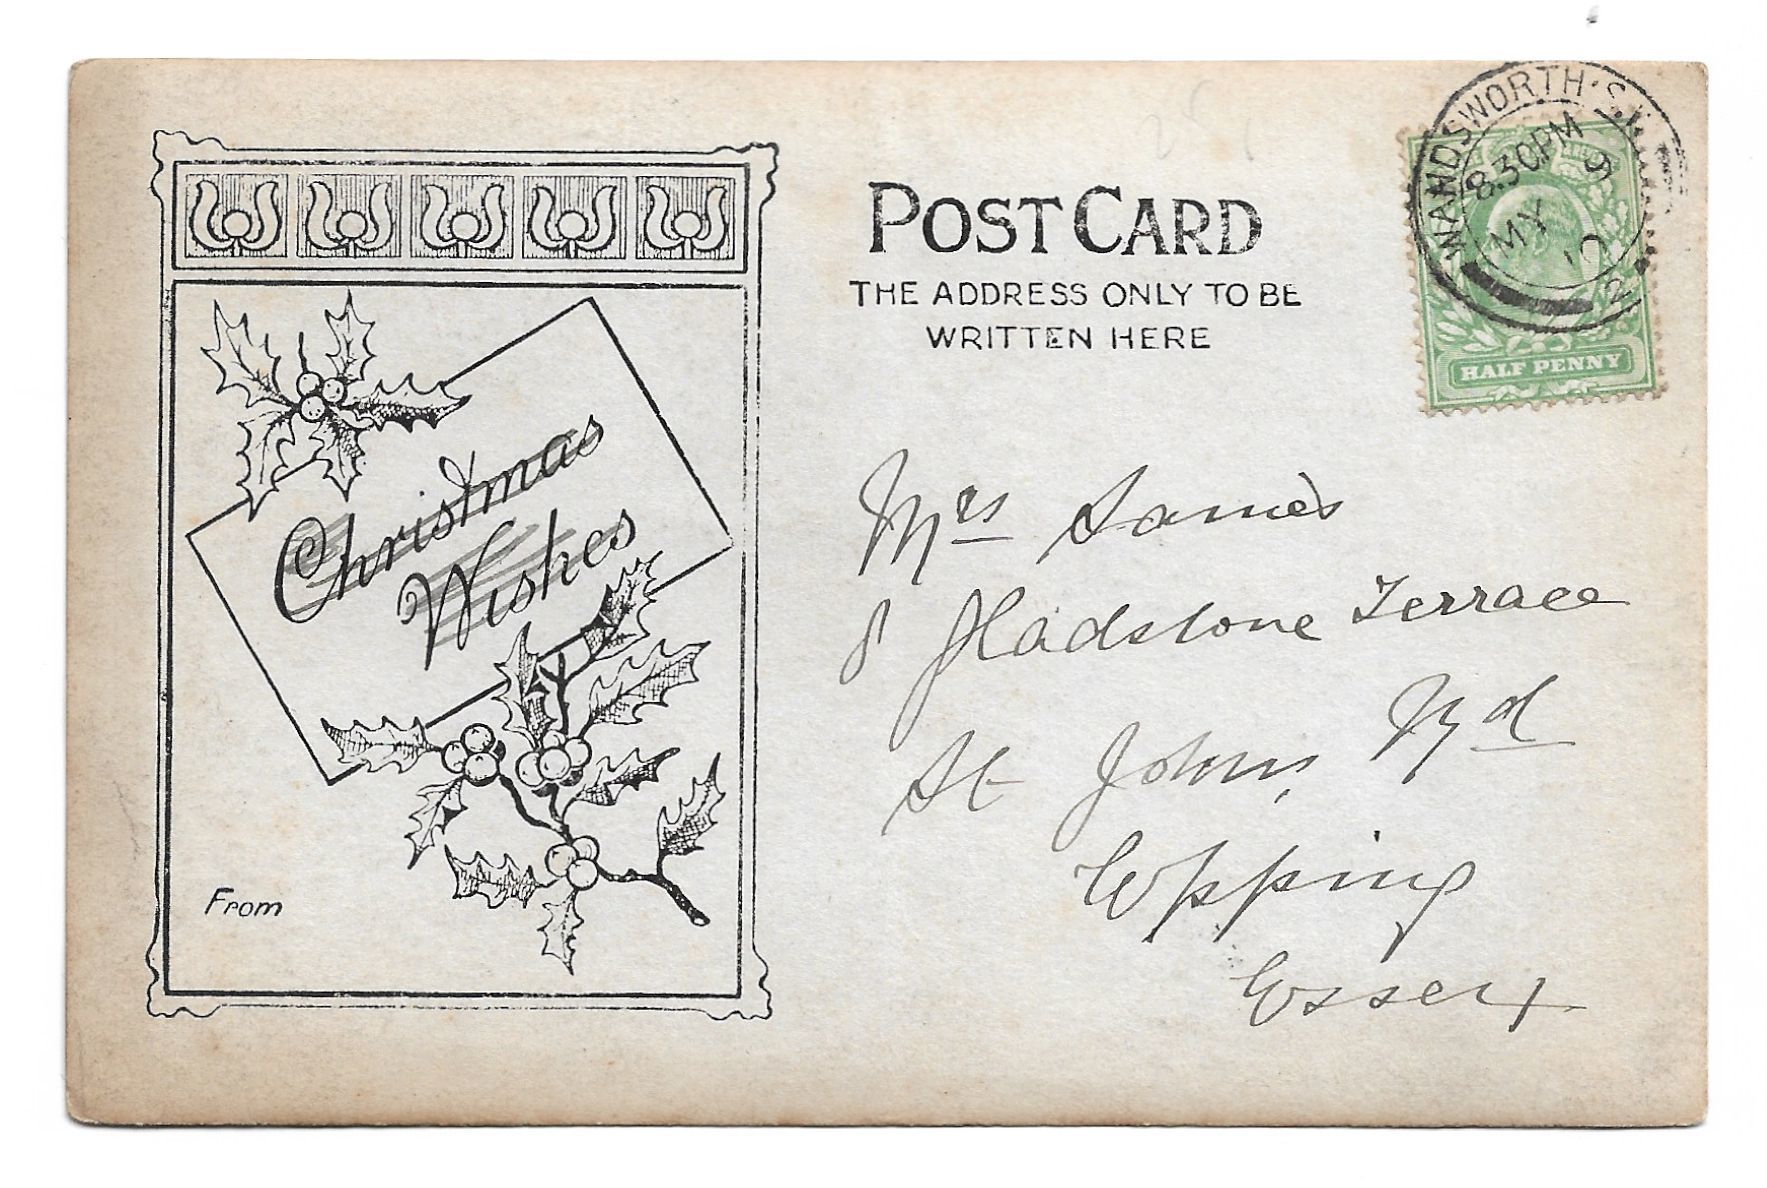 POST CARD
THE ADDRESS ONLY TO BE
WRITTEN HERE
WANDSWORTH·S.W.
8.30PM
MY 9
10
HALF PENNY
Christmas
Wishes
From
Mrs James
8 Gladstone Terrace
St Johns Rd
Epping
Essex